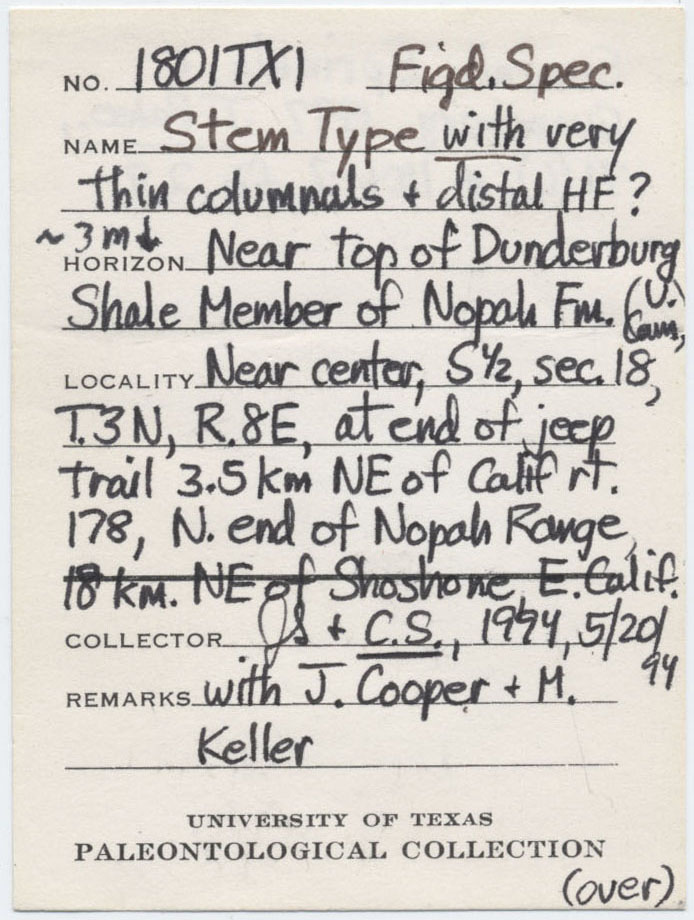 NO. 1801TX1 Figd. Spec.
NAME Stem Type with very
thin columnals + distal HF?
~3m↓
HORIZON Near top of Dunderburg
Shale Member of Nopah Fm. (U.
Cam,
LOCALITY Near center, S½, sec. 18,
T.3N, R.8E, at end of jeep
trail 3.5 km NE of Calif rt.
178, N. end of Nopah Range,
18 km. NE of Shoshone, E. Calif.
COLLECTOR JS + C.S., 1994, 5/20/
94
REMARKS with J. Cooper + M.
Keller
UNIVERSITY OF TEXAS
PALEONTOLOGICAL COLLECTION
(over)